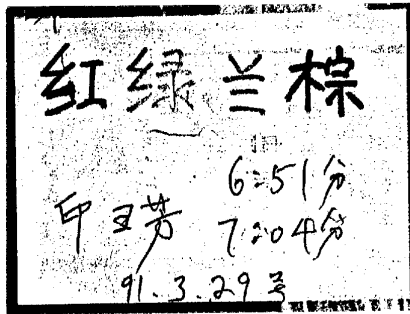 红绿兰棕
6:51分
印王芳 7:04分
91.3.29号